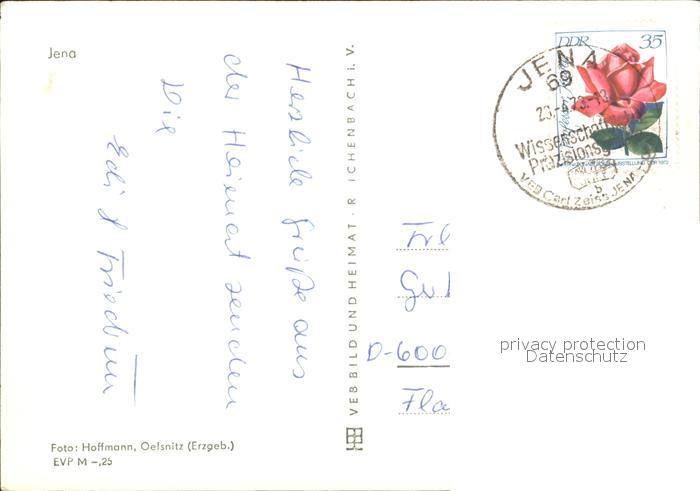 Jena
Herzliche Grüße aus
der Heimat senden
Die
Edi & Friedrun
VEB BILD UND HEIMAT · REICHENBACH i. V.
DDR 35
JENA
69
Wissenschaft
Präzisions
VEB Carl Zeiss JENA
b
Frl
D-600
Fla
privacy protection
Datenschutz
Foto: Hoffmann, Oelsnitz (Erzgeb.)
EVP M –,25